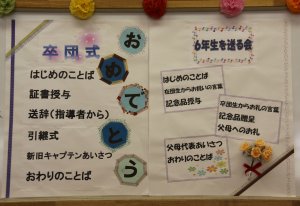 卒団式
おめでとう
はじめのことば
証書授与
送辞(指導者から)
引継式
新旧キャプテンあいさつ
おわりのことば
6年生を送る会
はじめのことば
在団生からお祝いの言葉
記念品授与
卒団生からお礼の言葉
記念品贈呈
父母へのお礼
父母代表あいさつ
おわりのことば